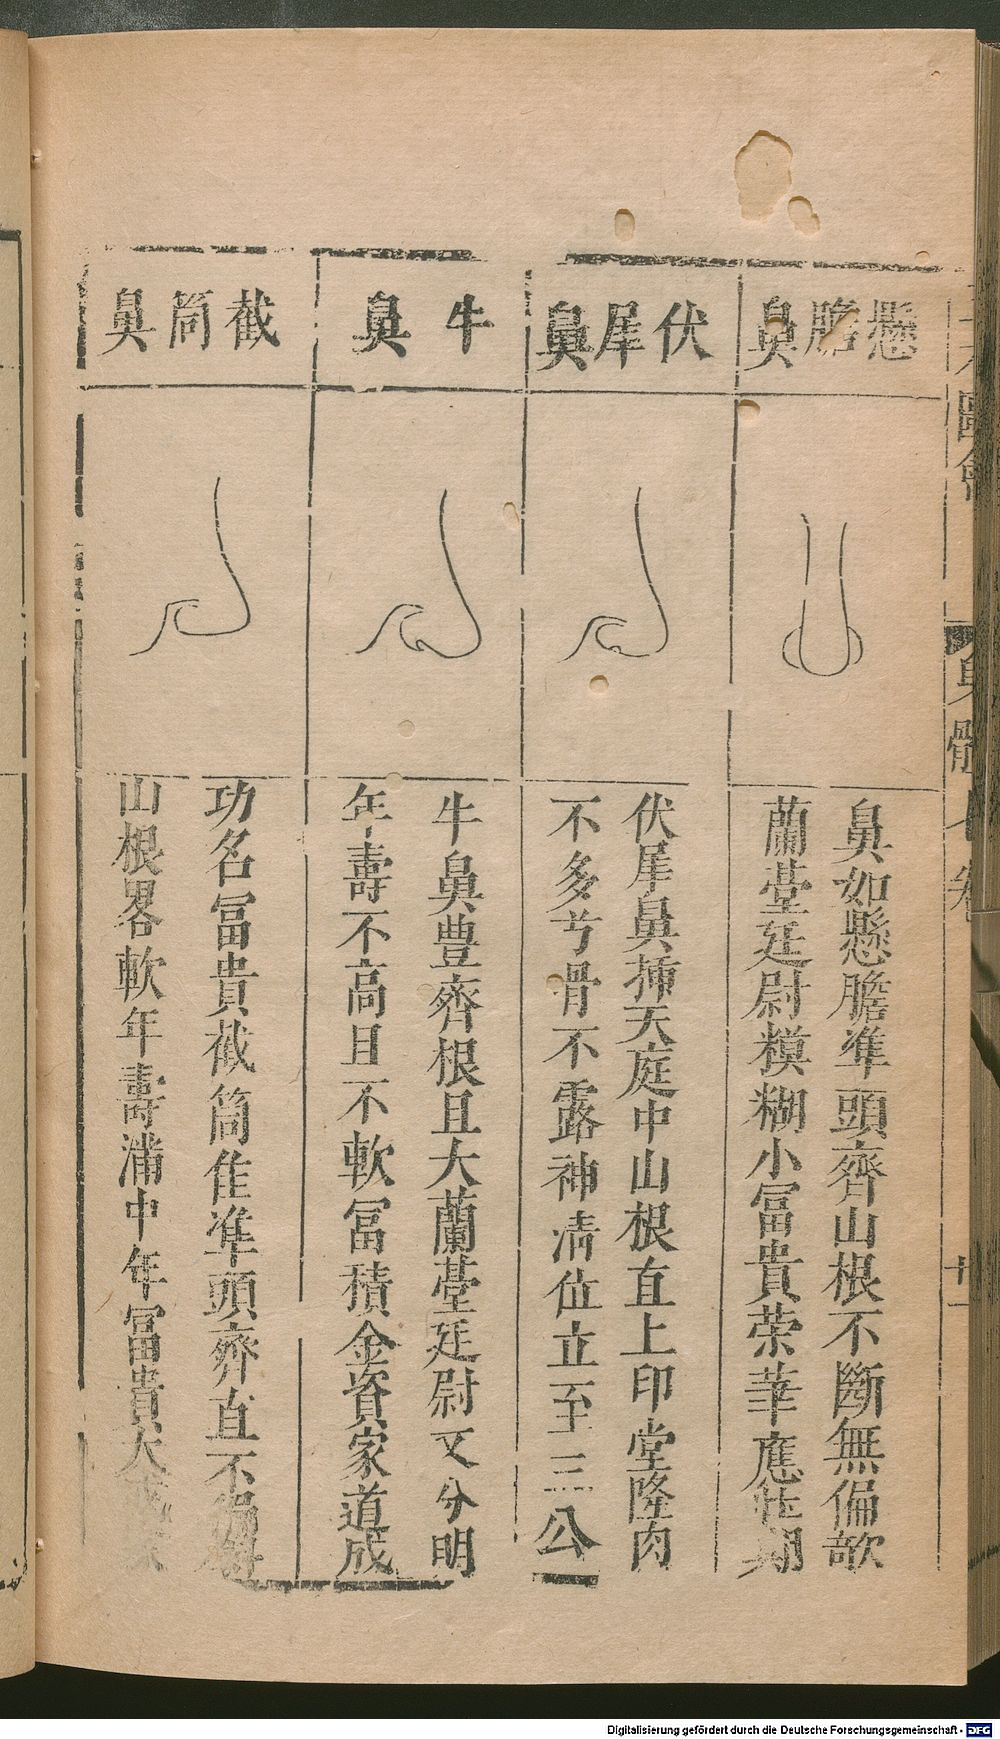 三才圖會
身體七卷
懸膽鼻
鼻如懸膽準頭齊山根不斷無偏欹
蘭臺廷尉模糊小冨貴荣華應壮期
伏犀鼻
伏犀鼻揷天庭中山根直上印堂隆肉
不多兮骨不露神清位立至三公
牛鼻
牛鼻豊齊根且大蘭臺廷尉又分明
年壽不高且不軟冨積金資家道成
截筒鼻
功名冨貴截筒佳準頭齊直不偏斜
山根畧軟年壽滿中年冨貴大
Digitalisierung gefördert durch die Deutsche Forschungsgemeinschaft - DFG